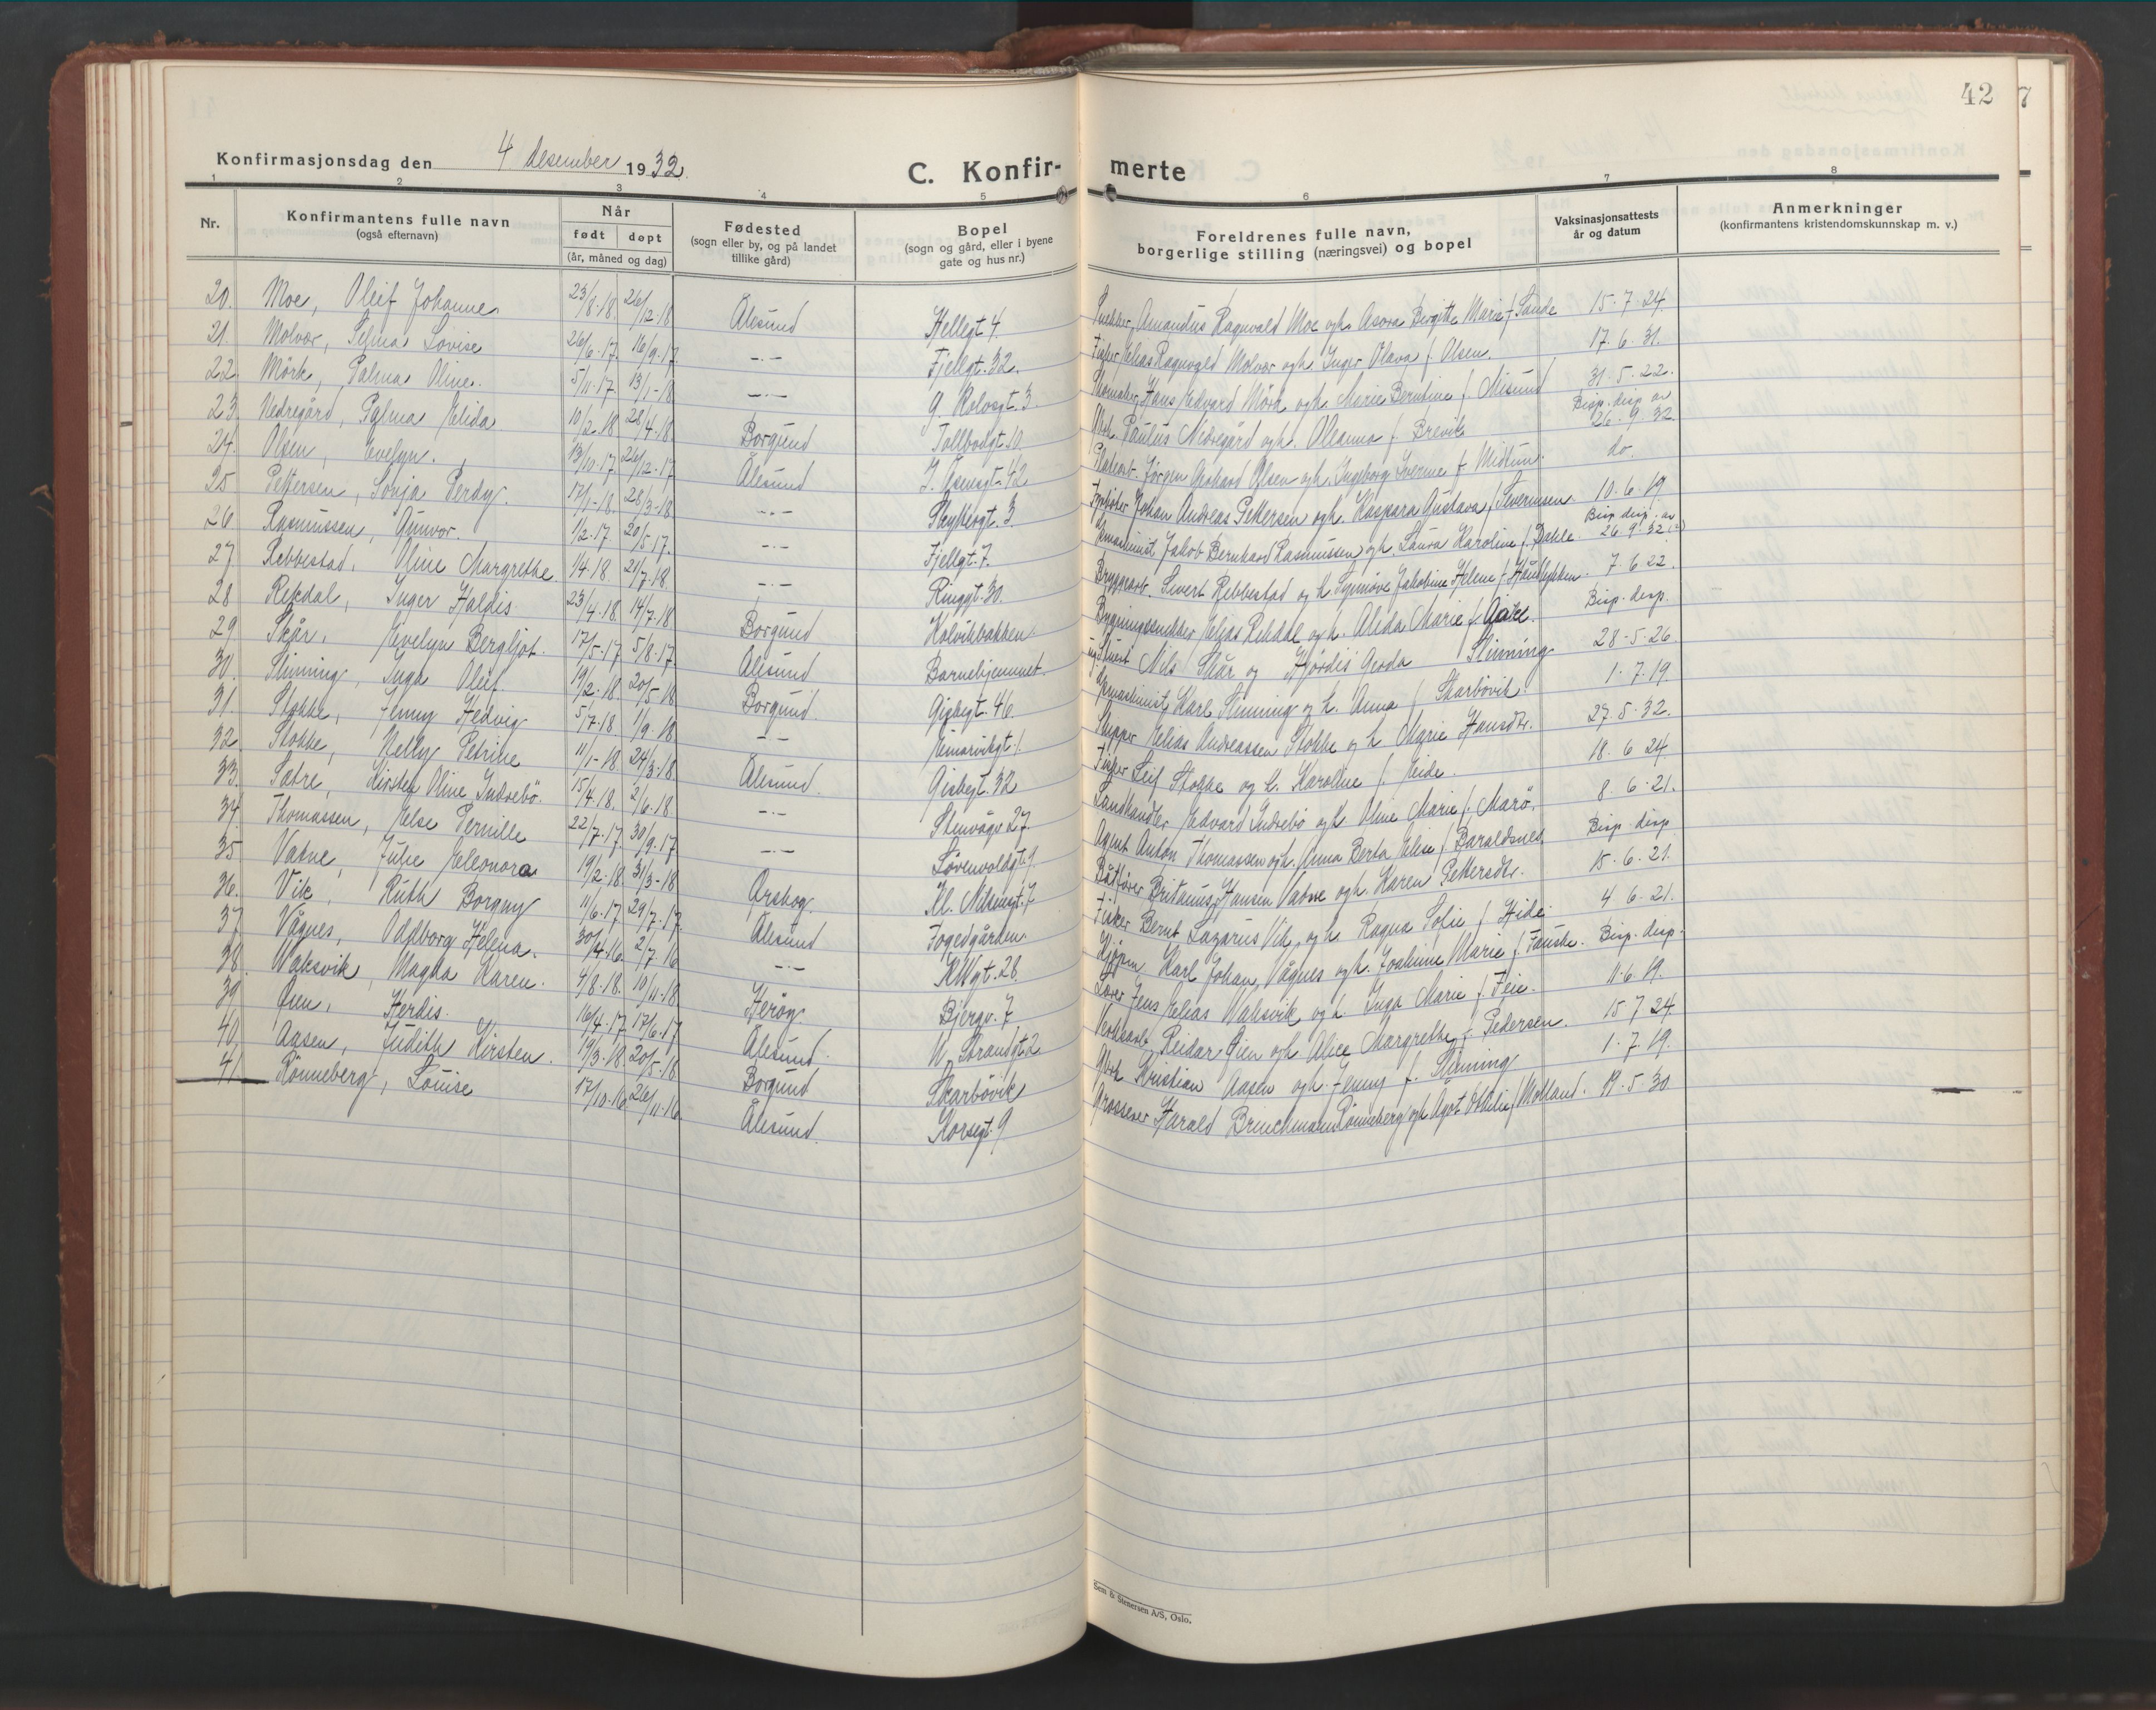 42
7
Konfirmasjonsdag den 4 desember 1932.
C. Konfir- merte
1 2 3 4 5 6 7 8
Nr.
Konfirmantens fulle navn
(også efternavn)
Når
født døpt
(år, måned og dag)
Fødested
(sogn eller by, og på landet
tillike gård)
Bopel
(sogn og gård, eller i byene
gate og hus nr.)
Foreldrenes fulle navn,
borgerlige stilling (næringsvei) og bopel
Vaksinasjonsattests
år og datum
Anmerkninger
(konfirmantens kristendomskunnskap m. v.)
20. Moe, Oleif Johanne 23/8.18. 26/12.18 Ålesund Hellegt 4. Snekker, Amandus Ragnvald Moe og h. Asora Birgitte Marie f. Sande 15.7.24.
21. Molvær, Selma Lovise 26/6.17. 16/9.17. -.- Fjellgt. 32. Fisker Elias Ragnvald Molvær og h. Inger Olava f. Olsen. 17.6.31.
22. Mörk, Palma Oline. 5/11.17. 13/1-18 -.- G. Rolvsgt. 3. Skomaker Hans Edvard Mörk og h. Marie Berntine f. Misund 31.5.22.
23. Nedregård, Palma Elida 10/2.18 28/4.18. Borgund Tollbodgt. 10. Arb. Paulus Nedregård og h. Oleanna f. Brevik Bisp. disp av 26.9.32
24. Olsen, Evelyn. 13/10.17. 26/12-17 Ålesund I. Åsensgt. 42 Jørgen Olsen og h. Ingeborg f. Midtun. do.
25 Pettersen, Sonja Gerdy. 17/1-18. 28/3-18 -.- 3. Fyrbøter Johan Andreas Pettersen og h. Kaspara Gustava f. Severinsen. 10.6.19.
26 Rasmussen, Gunvor. 1/2.17. 20/5.17. -.- Fjellgt. 7. Jakob Bernhard Rasmussen og h. Laura Karoline f. Dahle. Bisp. disp. av 26.9.32
27 Rebbestad, Oline Margrethe 1/4.18. 21/7.18. -.- Ringgt. 30. Bryggearb. Sivert Rebbestad og h. Synnöve Jakobine Helene f. 7.6.22.
28 Rekdal, Inger Haldis 23/4.18. 14/7.18 Borgund Kolvikbakken Bygningssnekker Elias Rekdal og h. Alida Marie f. Bisp. disp.
29 Skår, Evelyn Bergljot. 17/5.17 5/8.17. Ålesund Barnehjemmet. Nils Skår og Hjördis Gerda Slinning 28-5-26
30. Slinning, Inga Oleif. 19/2.18. 20/5.18 Borgund. 46. Karl Slinning og h. Anna f. Skarbövik. 1.7.19.
31. Stokke, Jenny Hedvig 5/7.18 1/9.18 -.- 1. Skipper Elias Andreassen Stokke og h. Marie Hansdtr. 27.5.32.
32. Stokke, Nelly Petrine 11/1-18 24/3.18. Ålesund. 32 Fisker Leif Stokke og h. Karoline f. Eide. 18.6 24.
33. Sætre, Kirsten Oline Indrebö. 15/4.18. 2/6.18 -.- Stenvågv 27. Landhandler Edvard Indrebö og h. Oline Marie f. Marö. 8.6.21.
34. Thomassen, Else Pernille 22/7.17. 30/9.17 -.- Løvenvoldgt. Agent Anton Thomassen og h. Anna Berta Elise f. Haraldsnes Bisp disp
35 Vatne, Julie Eleonora 19/2.18. 31/3-18 Ørskog. Kl. Nilsensgt. 7 Båtfører Hansen Vatne og h. Karen Pettersdtr. 15.6.21.
36. Vik, Ruth Borgny 11/6.17. 29/7.17. Ålesund Fogedgården. Fisker Bernt Lazarus Vik, og h. Ragna Sofie f. Hide 4.6.21.
37 Vågnes, Oddborg Helena. 30/4.16. 2/7.16 -.- 28. Kjöpm. Karl Johan Vågnes og h. Joakime Marie f. Fauske. Bisp. disp.
38. Walsvik, Magda Karen. 4/8.18. 10/11.18 Herøy. Bjergv. 7 Jens Elias Walsvik og h. Inga Marie f. 11.6.19.
39 Øien, Herdis. 16/4.17. 17/6.17 Ålesund. N. Strandgt. 2 Reidar Øien og h. Alice Margrethe f. Pedersen. 15 7 24.
40. Aasen, Judith Kirsten. 19/3.18 20/5-18 Borgund Skarbövik Arb Kristian Aasen og h. Jenny f. Slinning 1.7.19.
41. Rönneberg, Louise 17/10.16 26/11.16 Ålesund. Korsegt. 9 Grosserer Harald Brinchmann Rönneberg og h. Ågot Ottilie f. Molland. 19.5.30
Sem & Stenersen A/S, Oslo.